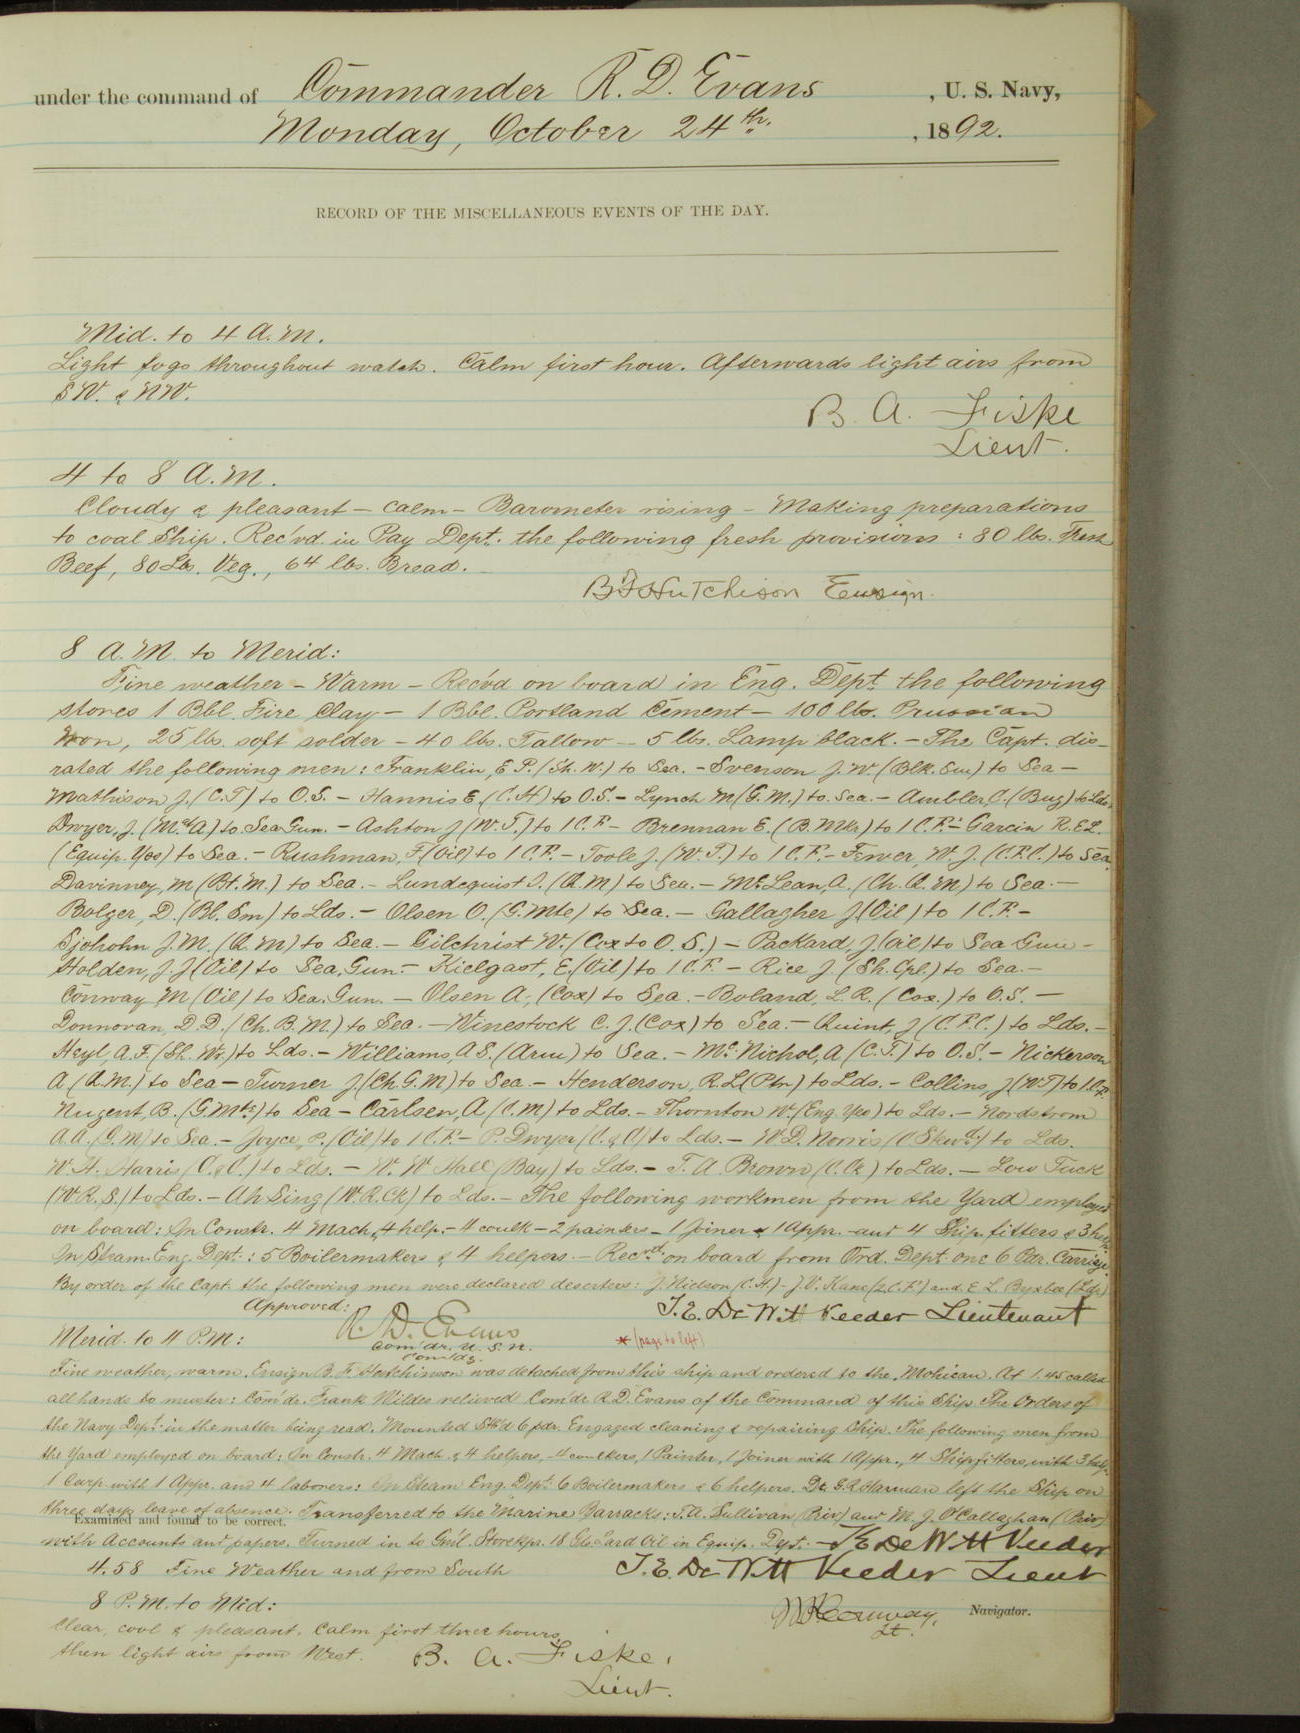 under the command of Commander R. D. Evans, U. S. Navy,
Monday, October 24th, 1892.
RECORD OF THE MISCELLANEOUS EVENTS OF THE DAY.
Mid. to 4 A.M.
Light fogs throughout watch. Calm first hour. Afterwards light airs from
SW. & NW.
B. A. Fiske
Lieut.
4 to 8 A.M.
Cloudy & pleasant – calm – Barometer rising – Making preparations
to coal Ship. Rec'vd in Pay Dept. the following fresh provisions: 80 lbs. Fresh
Beef, 80 Lbs. Veg., 64 lbs. Bread.
B F Hutchison Ensign.
8 A.M. to Merid:
Fine weather – Warm – Rec'vd on board in Eng. Dept. the following
stores 1 Bbl. Fire Clay – 1 Bbl. Portland Cement – 100 lbs. Prussian
Iron, 25 lbs. soft solder – 40 lbs. Tallow – 5 lbs. Lamp black. – The Capt. dis-
rated the following men: Franklin, E P. (Sh. W.) to Sea. – Svenson J. W. (Blk. Sm) to Sea –
Mathison J. (C.T) to O.S. – Hannis E. (C.H) to O.S. – Lynch M (G.M.) to Sea. – Ambler, C. (Bug) to Lds.
Dwyer, J. (M at A) to Sea Gun. – Ashton J (W.T.) to 1 C.F. – Brennan E. (B.Mkr) to 1 C.F. – Garcin R.E.L.
(Equip. Yeo) to Sea. – Rushman, F (Oil) to 1 C.F. – Toole J. (W.T.) to 1 C.F. – Ferver, W. J. (C.F.C.) to Sea.
Davinney, M (Bt. M.) to Sea. – Lundequist I. (Q.M) to Sea. – McLean, A. (Ch. Q. M) to Sea. –
Bolger, D. (Bl. Sm) to Lds. – Olsen O. (G. Mte) to Sea. – Gallagher J (Oil) to 1 C.F. –
Sjoholm J. M. (Q. M) to Sea. – Gilchrist W. (Cox to O.S.) – Packard, J. (Oil) to Sea Gun –
Holden, J. J (Oil) to Sea. Gun. – Kielgast, E. (Oil) to 1 C.F. – Rice J. (Sh. Cpl.) to Sea. –
Conway M (Oil) to Sea. Gun. – Olsen A, (Cox) to Sea. – Boland, L. R. (Cox.) to O.S. –
Donnovan, D. D. (Ch. B. M.) to Sea. – Winestock C. J. (Cox) to Sea. – Quint, J (C.F.C.) to Lds. –
Heyl, A. F. (Sh. Wr.) to Lds. – Williams, A S. (Arm) to Sea. – McNichol, A (C.T.) to O.S. – Nickerson
A (Q.M.) to Sea – Turner J (Ch. G. M) to Sea. – Henderson, R. L (Ptr) to Lds. – Collins, J (W T) to 1 C.F.
Nugent, B. (G. Mte) to Sea – Carlsen, A (C. M) to Lds. – Thornton W. (Eng. Yeo) to Lds. – Nordstrom
A. A. (G. M) to Sea. – Joyce, P. (Oil) to 1 C.F. – P. Dwyer (C. of O) to Lds. – W. D. Norris (C Stew'd) to Lds.
W. H. Harris (C. of C.) to Lds. – W. W Hall (Bay) to Lds. – T. A. Brown (C. Ck) to Lds. – Low Tuck
(W. R. S.) to Lds. – Ah Sing (W. R. Ck) to Lds. – The following workmen from the Yard employed
on board: In Constr. 4 Mach, 4 help. – 4 caulk – 2 painters – 1 Joiner & 1 Appr. and 4 Ship fitters & 3 help.
In Steam Eng. Dept.: 5 Boilermakers & 4 helpers. – Rec'vd on board from Ord. Dept. one 6 Pdr. Carriage
By order of the Capt. the following men were declared deserters: J. Nielson (C.H) – J. V. Kane (2 C.F) and E. L. Byxbee (Lds)
Approved:
R. D. Evans
Com'dr. U. S. N.
Com'dg.
T. E. De Witt Veeder Lieutenant
* (page to left)
Merid. to 4 P.M:
Fine weather, warm. Ensign B. F. Hutchinson was detached from this ship and ordered to the Mohican. At 1.45 called
all hands to muster: Com'dr. Frank Wildes relieved Com'dr R. D. Evans of the Command of this Ship. The Orders of
the Navy Dept. in the matter being read. Mounted Stb'd 6 pdr. Engaged cleaning & repairing Ship. The following men from
the Yard employed on board: In Constr. 4 Mach. & 4 helpers, 4 caulkers, 1 Painter, 1 Joiner with 1 Appr., 4 Shipfitters, with 3 help.
1 Carp. with 1 Appr. and 4 laborers: In Steam Eng. Dept. 6 Boilermakers & 6 helpers. Dr. G. R. Harmon left the Ship on
three days leave of absence. Transferred to the Marine Barracks: T. A. Sullivan (Priv) and M. J. O'Callaghan (Priv)
Examined and found to be correct.
with Accounts and papers. Turned in to Gen'l. Storekpr. 18 Gls. Lard Oil in Equip. Dept. – T. E. De Witt Veeder
4.58 Fine Weather and from South T. E. De Witt Veeder Lieut
8 P.M. to Mid:
Clear, cool & pleasant. Calm first three hours,
then light airs from West.
B. A. Fiske,
Lieut.
Lt. Navigator.